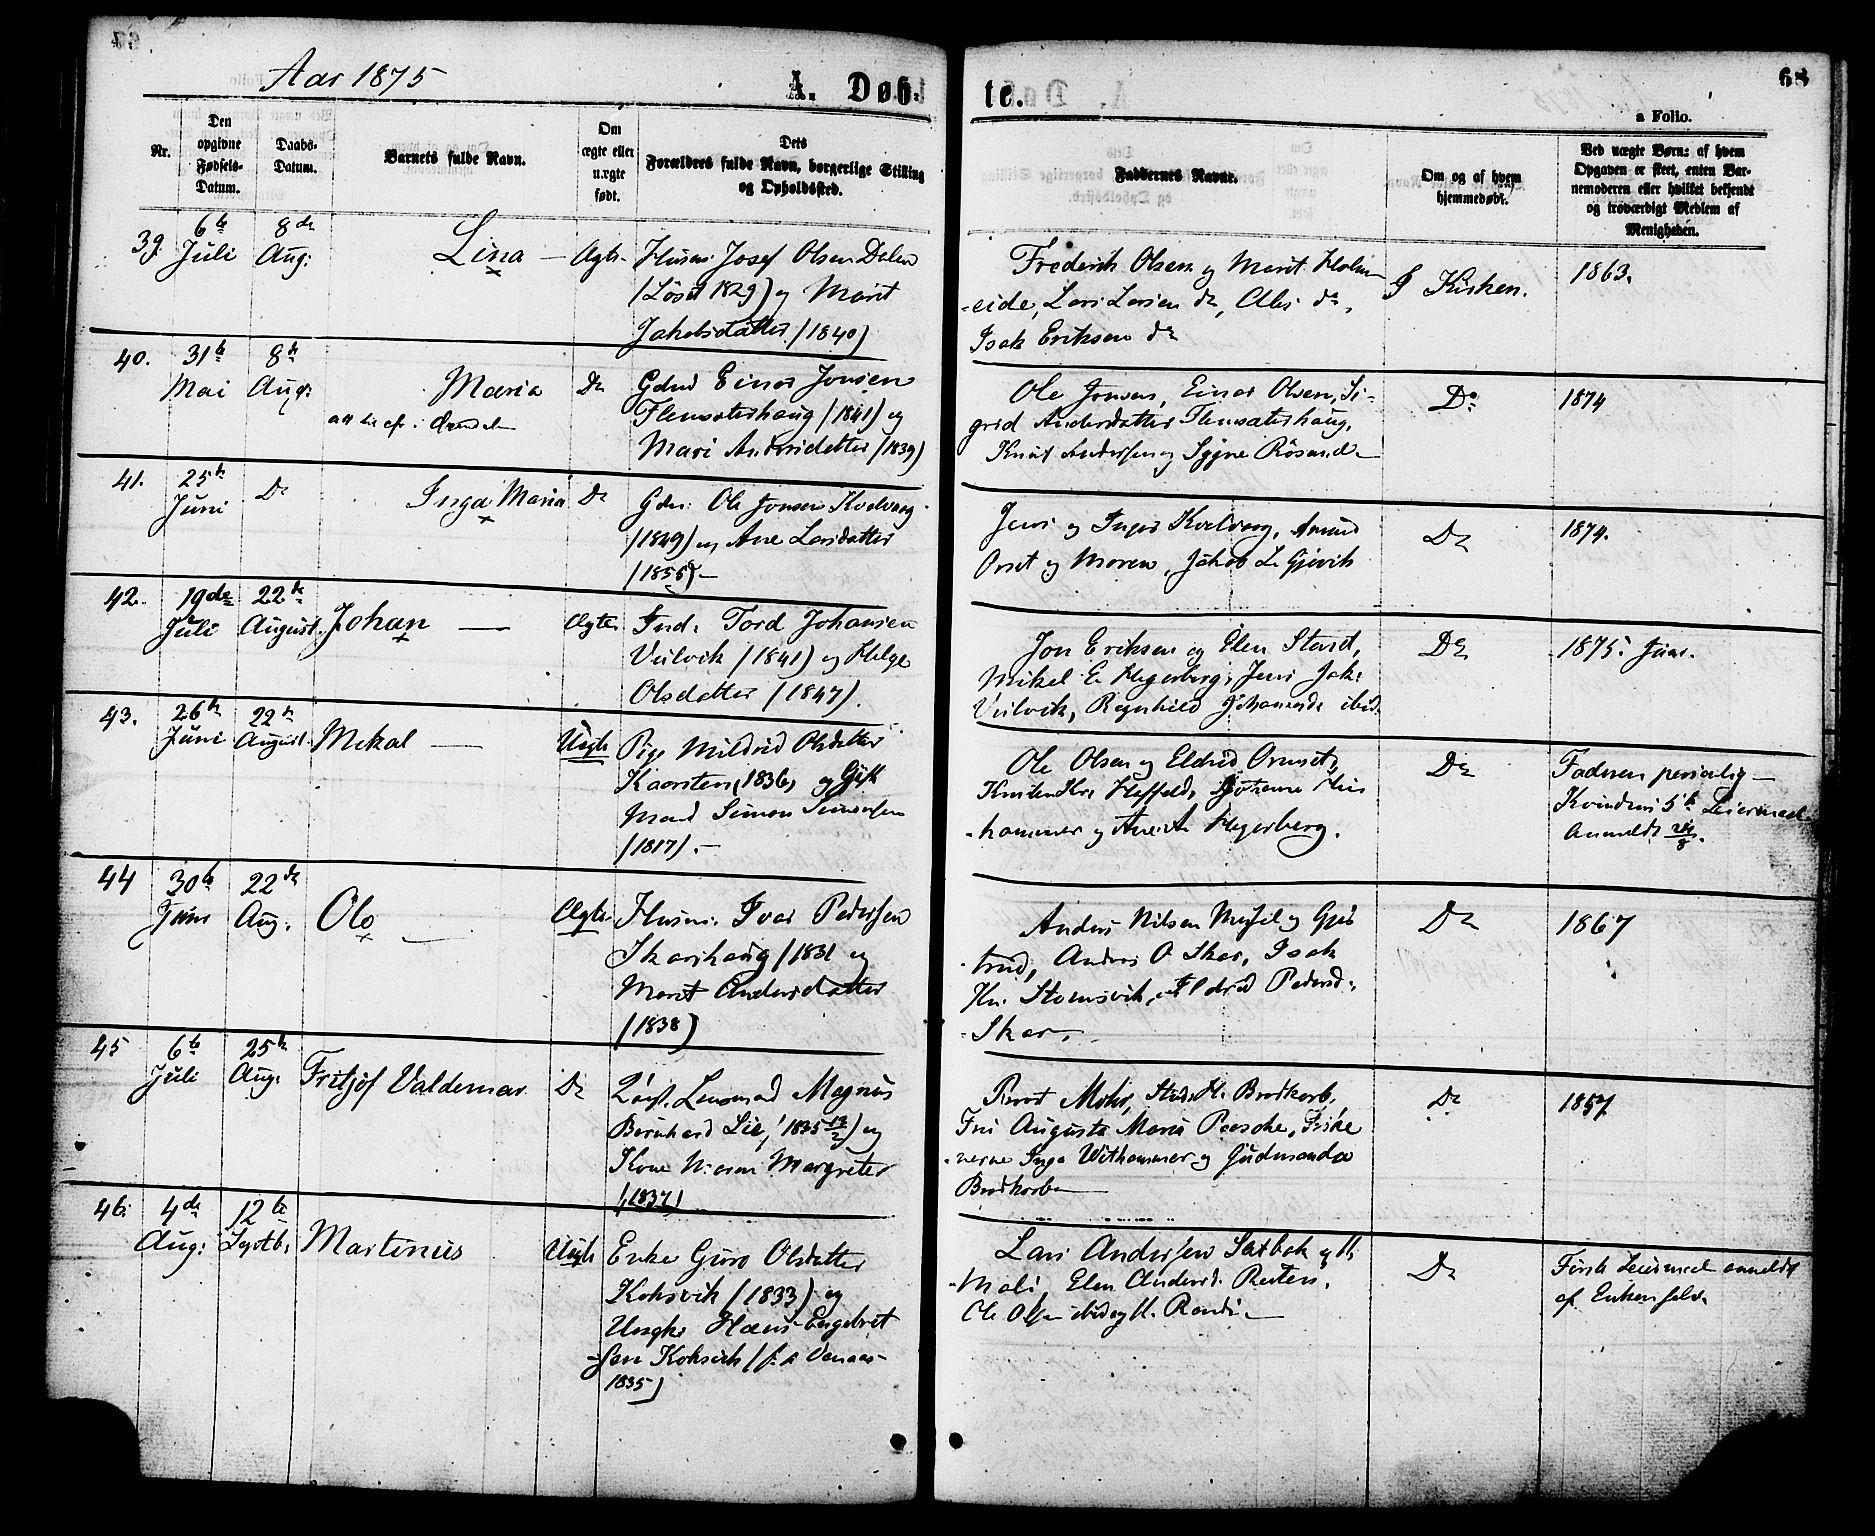 Aar 1875
A. Døb-
te.
68
a Folio.
Nr.
Den
opgivne
Fødsels-
Datum.
Daabs-
Datum.
Barnets fulde Navn.
Om
ægte eller
uægte
født.
Dets
Forældres fulde Navn, borgerlige Stilling
og Opholdssted.
Faddernes Navne.
Om og af hvem
hjemmedøbt.
Ved uægte Børn: af hvem
Opgaven er skeet, enten Bar-
nemoderen eller hvilket bekjendt
og troværdigt Medlem af
Menigheden.
39.
6te
Juli
8de
Aug:
Lina
Ægte
Husm: Josef Olsen Dalen
(Löset 1829) og Marit
Jakobsdatter (1840)
Frederik Olsen og Marit Holm-
eide, Lars Larsen do,
Isak Eriksen do
I Kirken.
1863.
40.
31te
Mai
8de
Aug:
Maria
Do
Gdmd Einar Jonsen
Flemsæterhaug (1841) og
Mari Andersdatter (1839)
Ole Jonsen, Einar Olsen, Si-
grid Andersdatter Flemsæterhaug,
Knut Andersen og Sygne Rösand
Do
1874
41.
25te
Juni
Do
Inga Maria
Do
Gdm: Ole Jonsen Kvalvaag
(1849) og Ane Larsdatter
(1855)
Jens og Inger Kvalvaag, Amund
Orset og Moren, Jakob L. Gjevik
Do
1874.
42.
19de
Juli
22de
August
Johan
Ægte
Ind. Tord Johansen
Viilvik (1841) og Helge
Olsdatter (1847).
Jon Eriksen og Elen Stand,
Mikel E. Hegerberg, Jens Jak:
Viilvik, Ragnhild Johannesd. ibid.
Do
1875. Juni.
43.
26te
Juni
22de
August
Mekal
Uægte
Pige Mildrid Olsdatter
Kaarsten (1836) og Gift
Mand Simon Simonsen
(1817).
Ole Olsen og Eldrid Orenset,
-hammer og Ane A. Hegerberg.
Do
Faderen personlig
Kvindens 5te Leiermaal
Anmeldt
44
30te
Juni
22de
Aug.
Ole
Ægte
Husm. Iver Pedersen
Skarshaug (1831 og
Marit Andersdatter
(1838)
Anders Nilsen Meisal og Gjer
trud, Anders O Skar, Isak
Stomsvik, Eldrid Pedersd.
Skar.
Do
1867
45
6te
Juli
25de
Aug:
Fritjof Valdemar
Do
Lensmand Magnus
Bernhard Lie, (1835) og
Kone Maren Margrete
(1837)
Mohr, Stud. H. Brodkorb,
Fru Augusta Marie Paasche, Frøke
nerne Inga Withammer og Gudmunda
Brodkorb
Do
1857.
46.
4de
Aug:
12te
Septb.
Martinus
Uægte
Enke Guro Olsdatter
Kohsvik (1833) og
Ungkr. Hans Engebret
-sen Kohsvik (f. p. Venaas
1835)
Lars Andersen Saxbak og H.
Mali, Elen Andersd. Reiten,
Ole Olsen ibid og H. Randi
Do
Første Leiermaal anmeldt
af Enken selv.